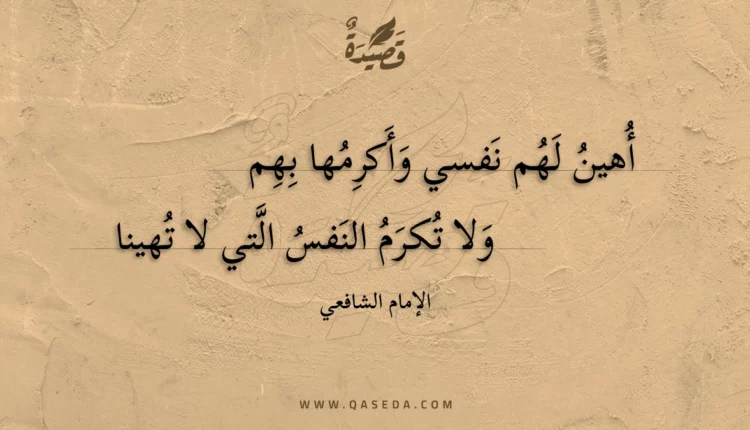 قَصِيْدَةٌ
أُهينُ لَهُم نَفسي وَأَكرِمُها بِهِم
وَلا تُكرَمُ النَفسُ الَّتي لا تُهينا
الإمام الشافعي
WWW.QASEDA.COM